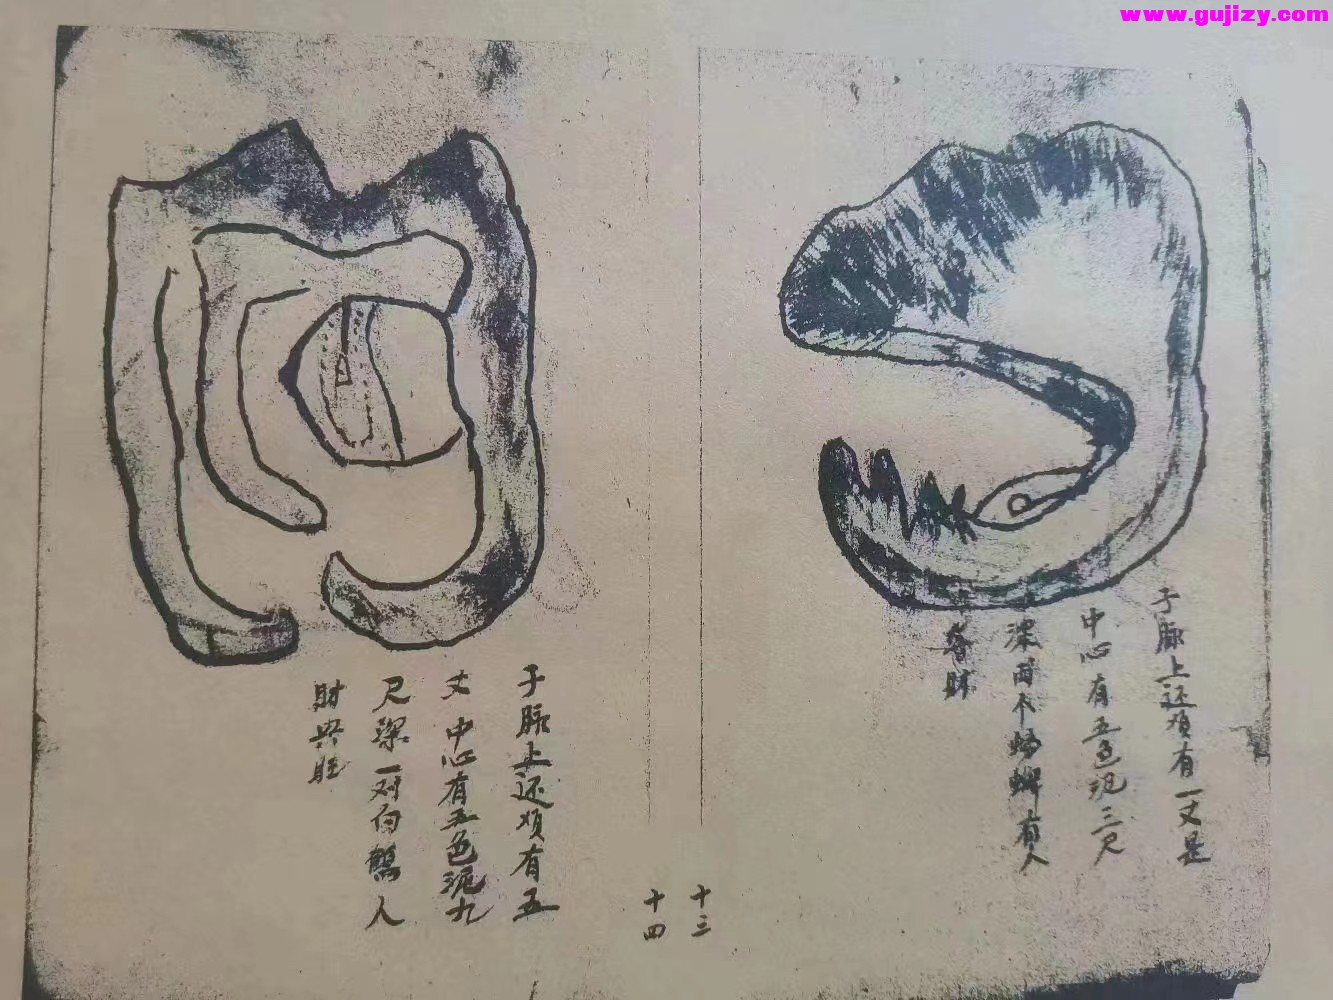 www.gujizy.com
子脉上还须有一丈是
中心有五色泥三尺
深两个蝴蝶有人
发财
十三
子脉上还须有五
丈中心有五色泥九
尺深一对白鹤人
财兴旺
十四